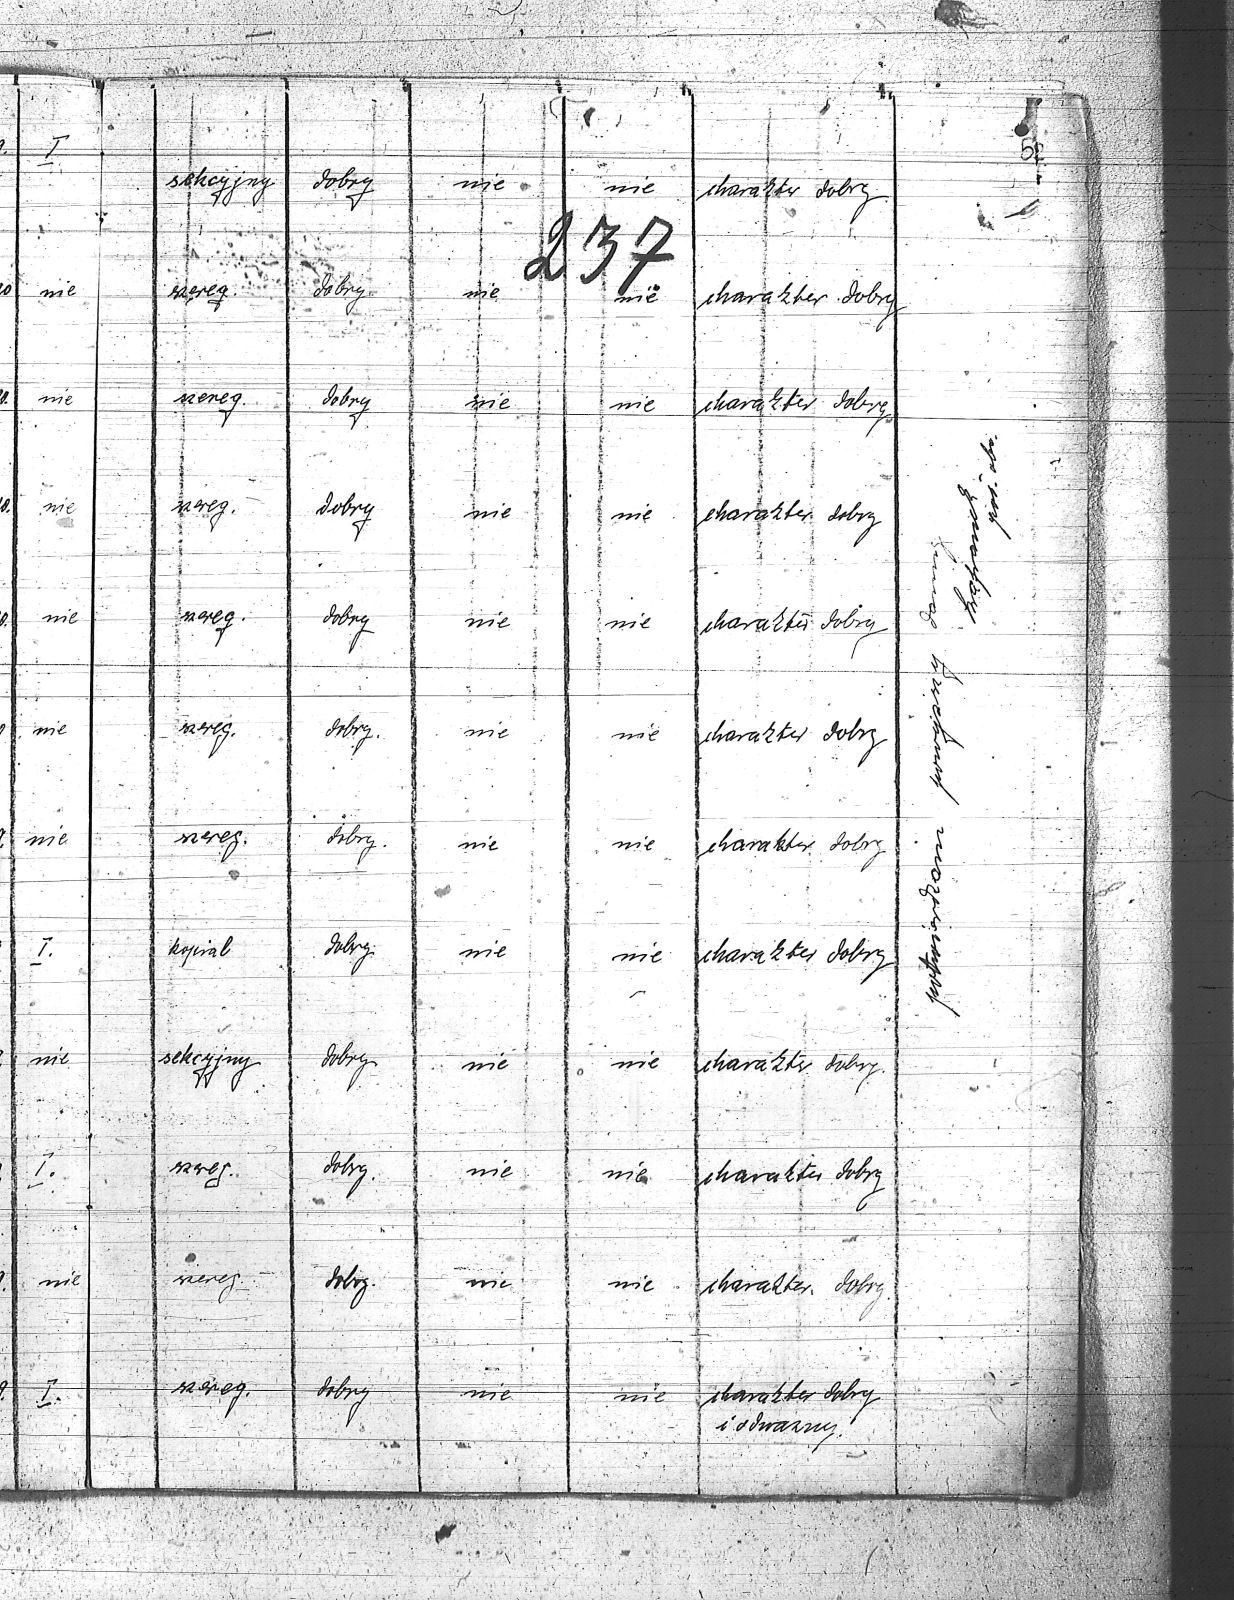 I
sekcyjny dobry nie nie charakter dobry
237
nie szereg. dobry. nie nie charakter dobry
nie szereg. dobry nie nie charakter dobry.
nie szereg. dobry nie nie charakter dobry
nie szereg. dobry nie nie charakter dobry
nie szereg. dobry. nie nie charakter dobry
nie szereg. dobry. nie nie charakter dobry
I. kopral dobry. nie nie charakter dobry
nie sekcyjny dobry. nie nie charakter dobry.
I. szereg. dobry. nie nie charakter dobry
nie szereg dobry. nie nie charakter dobry
I. szereg. dobry nie nie charakter dobry
i odwazny.
potwierdzam powyższy